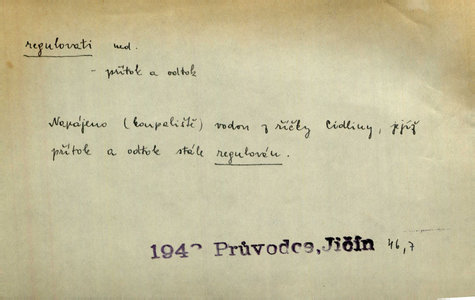 regulovati ned.
- přítok a odtok
Napájeno (koupaliště) vodou z říčky Cidliny, jejíž
přítok a odtok stále regulován.
Průvodce, Jičín 46,7